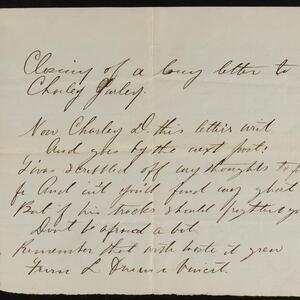 Closing of a long letter to
Charley Gurley.
Now Charley D. this letter's writ
And goes by the next post:
I've scribbled off my thoughts to
And in it you'll find my ghost
But if his tracks should frighten yo
Don't be afraid a bit
Remember that with haste it grew
From L